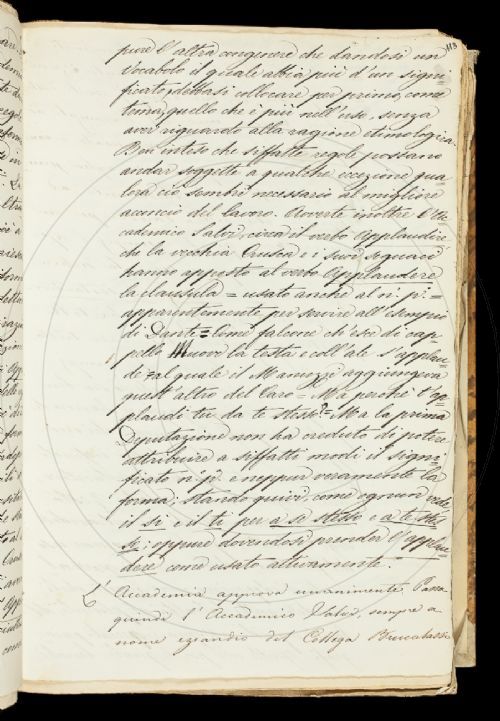 113
pure l'altra congenere che dandosi un
vocabolo il quale abbia più d'un signi
ficato, debbasi collocare per primo, come
tema, quello che è più nell'uso, senza
aver riguardo alla ragione etimologica.
Ben inteso che siffatte regole possano
andar soggette a qualche eccezione qua=
lora ciò sembri necessario al migliore
acconcio del lavoro. Avverte inoltre l'Ac
cademico Salvi, circa il verbo Applaudire
che la vecchia Crusca e i suoi seguaci
hanno apposto al verbo Applaudere
la clausula = usato anche al n: p: =
apparentemente per servire all'esempio
di Dante = Come falcone ch'esce di cap=
pello Muove la testa e coll'ale s'applau
de = al quale il Manuzzi aggiungeva
quest'altro del Caro = Ma perchè t'ap
plaudi tu da te stesso? = Ma la prima
Deputazione non ha creduto di potere
attribuire a siffatti modi il signi=
ficato n: p: e neppur veramente la
forma: stando quivi, come ognun vede
il si e il ti per a se stesso e a te stes
so: oppure dovendosi prender l'applau
dere come usato attivamente.
L'Accademia approva unanimente. Passa
quindi l'Accademico Salvi, sempre a
nome eziandio del Collega Brucalassi